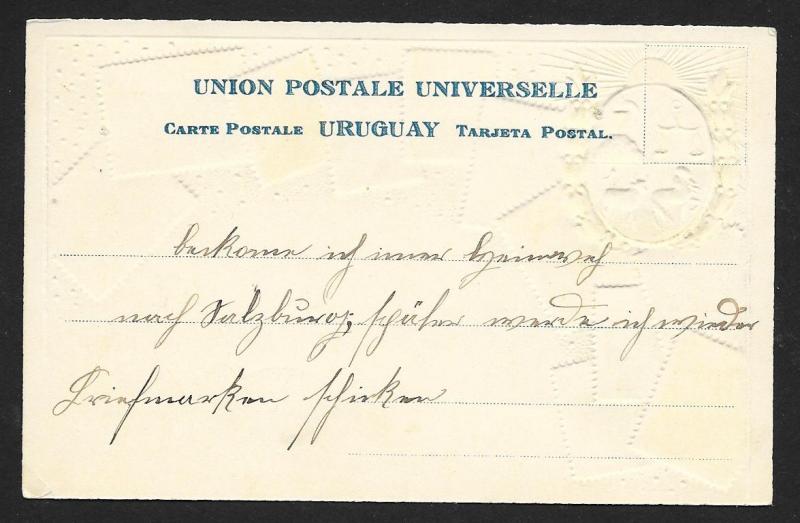 UNION POSTALE UNIVERSELLE
CARTE POSTALE URUGUAY TARJETA POSTAL.
beckome ich imer Heimweh
nach Salzburg, später werde ich wieder
Briefmarken schicken